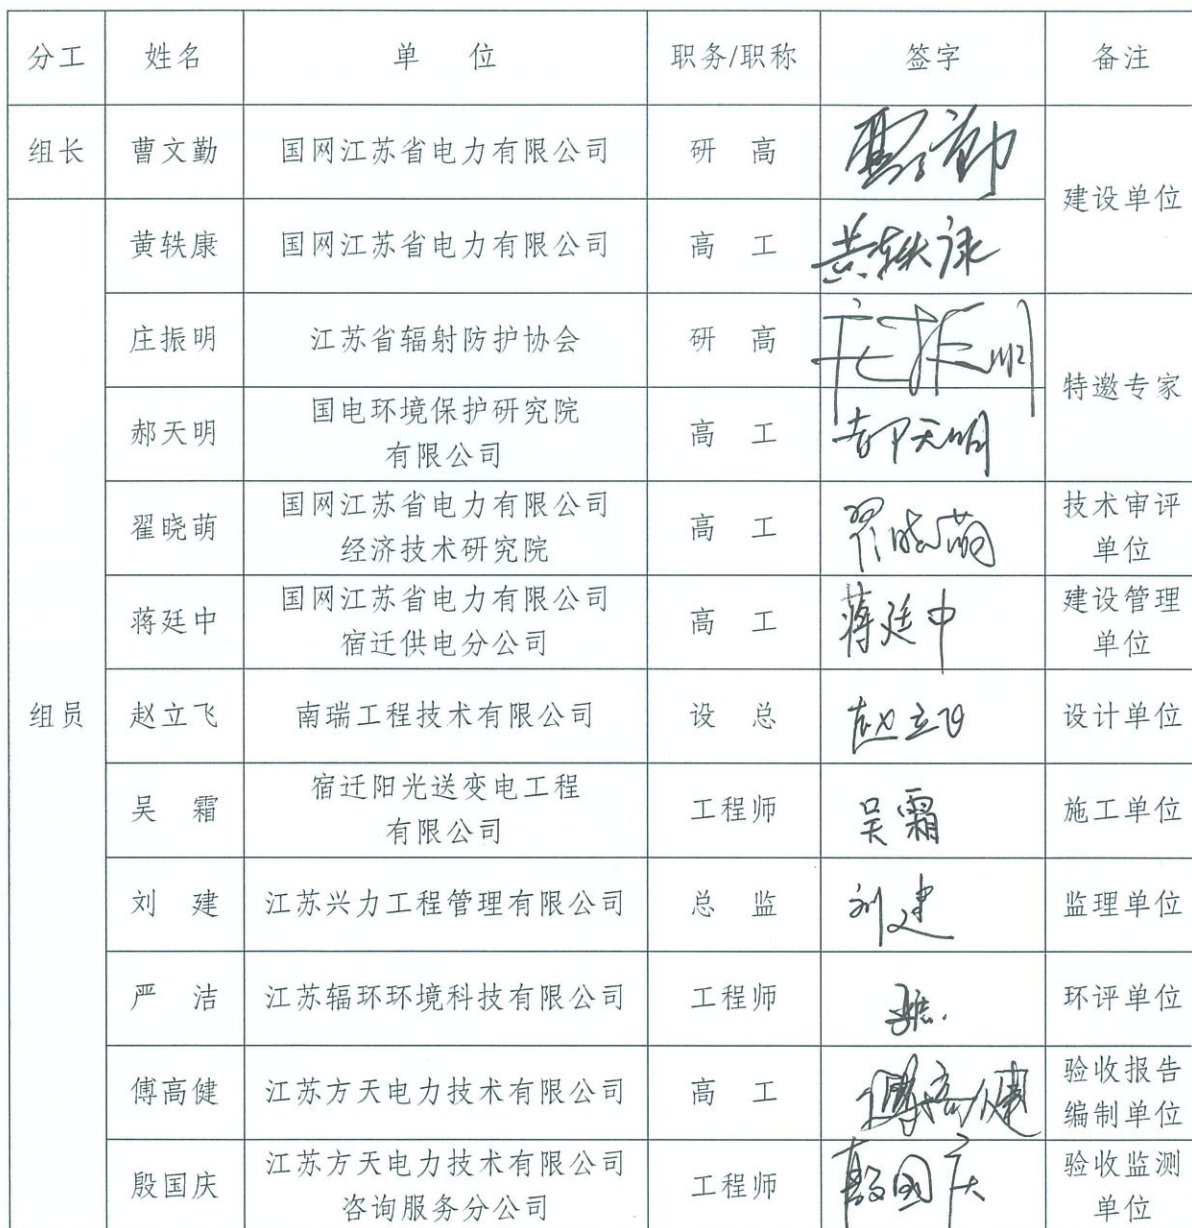 分工 姓名 单 位 职务/职称 签字 备注
组长 曹文勤 国网江苏省电力有限公司 研 高 曹文勤
建设单位
黄轶康 国网江苏省电力有限公司 高 工 黄轶康
庄振明 江苏省辐射防护协会 研 高 庄振明
特邀专家
郝天明 国电环境保护研究院
有限公司 高 工 郝天明
翟晓萌 国网江苏省电力有限公司
经济技术研究院 高 工 翟晓萌 技术审评
单位
蒋廷中 国网江苏省电力有限公司
宿迁供电分公司 高 工 蒋廷中 建设管理
单位
组员 赵立飞 南瑞工程技术有限公司 设 总 赵立飞 设计单位
吴 霜 宿迁阳光送变电工程
有限公司 工程师 吴霜 施工单位
刘 建 江苏兴力工程管理有限公司 总 监 刘建 监理单位
严 洁 江苏辐环环境科技有限公司 工程师 环评单位
傅高健 江苏方天电力技术有限公司 高 工 傅高健 验收报告
编制单位
殷国庆 江苏方天电力技术有限公司
咨询服务分公司 工程师 殷国庆 验收监测
单位